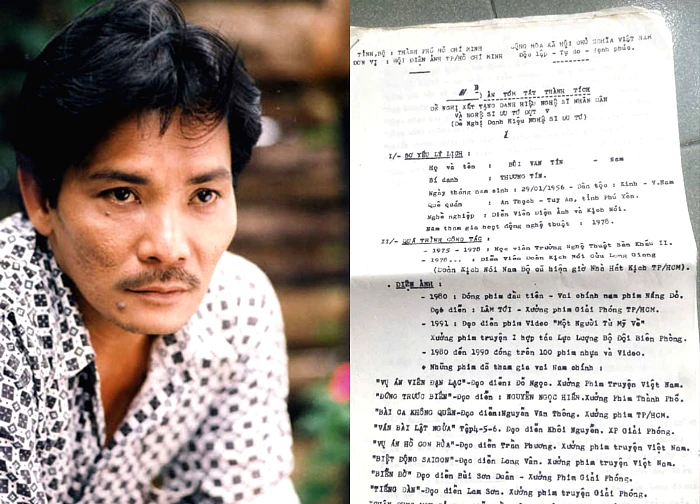 TỈNH,BỘ : THÀNH PHỐ HỒ CHÍ MINH
CỘNG HÒA XÃ HỘI CHỦ NGHĨA VIỆT NAM
ĐƠN VỊ : HỘI ĐIỆN ẢNH TP/HỒ CHÍ MINH
Độc lập - Tự do - Hạnh phúc.
ÁN TÓM TẮT THÀNH TÍCH
ĐỀ NGHỊ XÉT TẶNG DANH HIỆU NGHỆ SĨ NHÂN DÂN
VÀ NGHỆ SĨ ƯU TÚ ĐỢT V
(Đề Nghị Danh Hiệu NGHỆ SĨ ƯU TÚ)
I/- SƠ YẾU LÝ LỊCH :
Họ và tên : BÙI VĂN TÍN - Nam
Bí danh : THƯƠNG TÍN.
Ngày tháng năm sinh : 29/01/1956 - Dân tộc : Kinh - V.Nam
Quê quán : An Thạch - Tuy An, tỉnh Phú Yên.
Nghề nghiệp : Diễn Viên Điện Ảnh và Kịch Nói.
Năm tham gia hoạt động nghệ thuật : 1978.
II/- QUÁ TRÌNH CÔNG TÁC :
- 1975 - 1978 : Học viên Trường Nghệ Thuật Sân Khấu II.
- 1978... : Diễn Viên Đoàn Kịch Nói Cửu Long Giang
(Đoàn Kịch Nói Nam Bộ cũ hiện giờ Nhà Hát Kịch TP/HCM).
. ĐIỆN ẢNH :
- 1980 : Đóng phim đầu tiên - Vai chính nam phim Nắng Đỏ.
Đạo diễn : LÂM TỚI - Xưởng Phim Giải Phóng TP/HCM.
- 1991 : Đạo diễn phim Video "Một Người Từ Mỹ Về"
Xưởng phim truyện I hợp tác Lực Lượng Bộ Đội Biên Phòng.
- 1980 đến 1990 đóng trên 100 phim nhựa và Video.
+ Những phim đã tham gia vai Nam chính :
"VỤ ÁN VIÊN ĐẠN LẠC"-Đạo diễn: Đỗ Ngọc. Xưởng Phim Truyện Việt Nam.
"ĐỨNG TRƯỚC BIỂN"-Đạo diễn : NGUYỄN NGỌC HIẾN.Xưởng Phim Thành Phố.
"BÀI CA KHÔNG QUÊN"-Đạo diễn:Nguyễn Văn Thông. Xưởng phim TP/HCM.
"VÁN BÀI LẬT NGỬA" Tập4-5-6. Đạo diễn Khôi Nguyên. XP Giải Phóng.
"VỤ ÁN HỒ CON RÙA"-Đạo diễn Trần Phương. Xưởng phim truyện Việt Nam.
"BIỆT ĐỘNG SAIGON"-Đạo diễn Long Vân. Xưởng phim truyện Việt Nam.
"BIỂN BỜ" Đạo diễn Bùi Sơn Duân - Xưởng Phim Giải Phóng.
"TIẾNG ĐÀN"-Đạo diễn Lam Sơn. Xưởng phim truyện Giải Phóng.